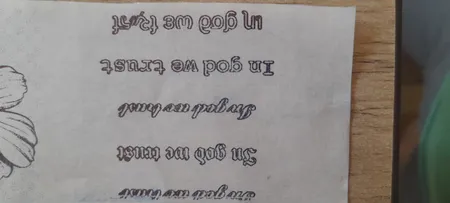 In god we trust
In god we trust
In god we trust
In god we trust
in god we trust